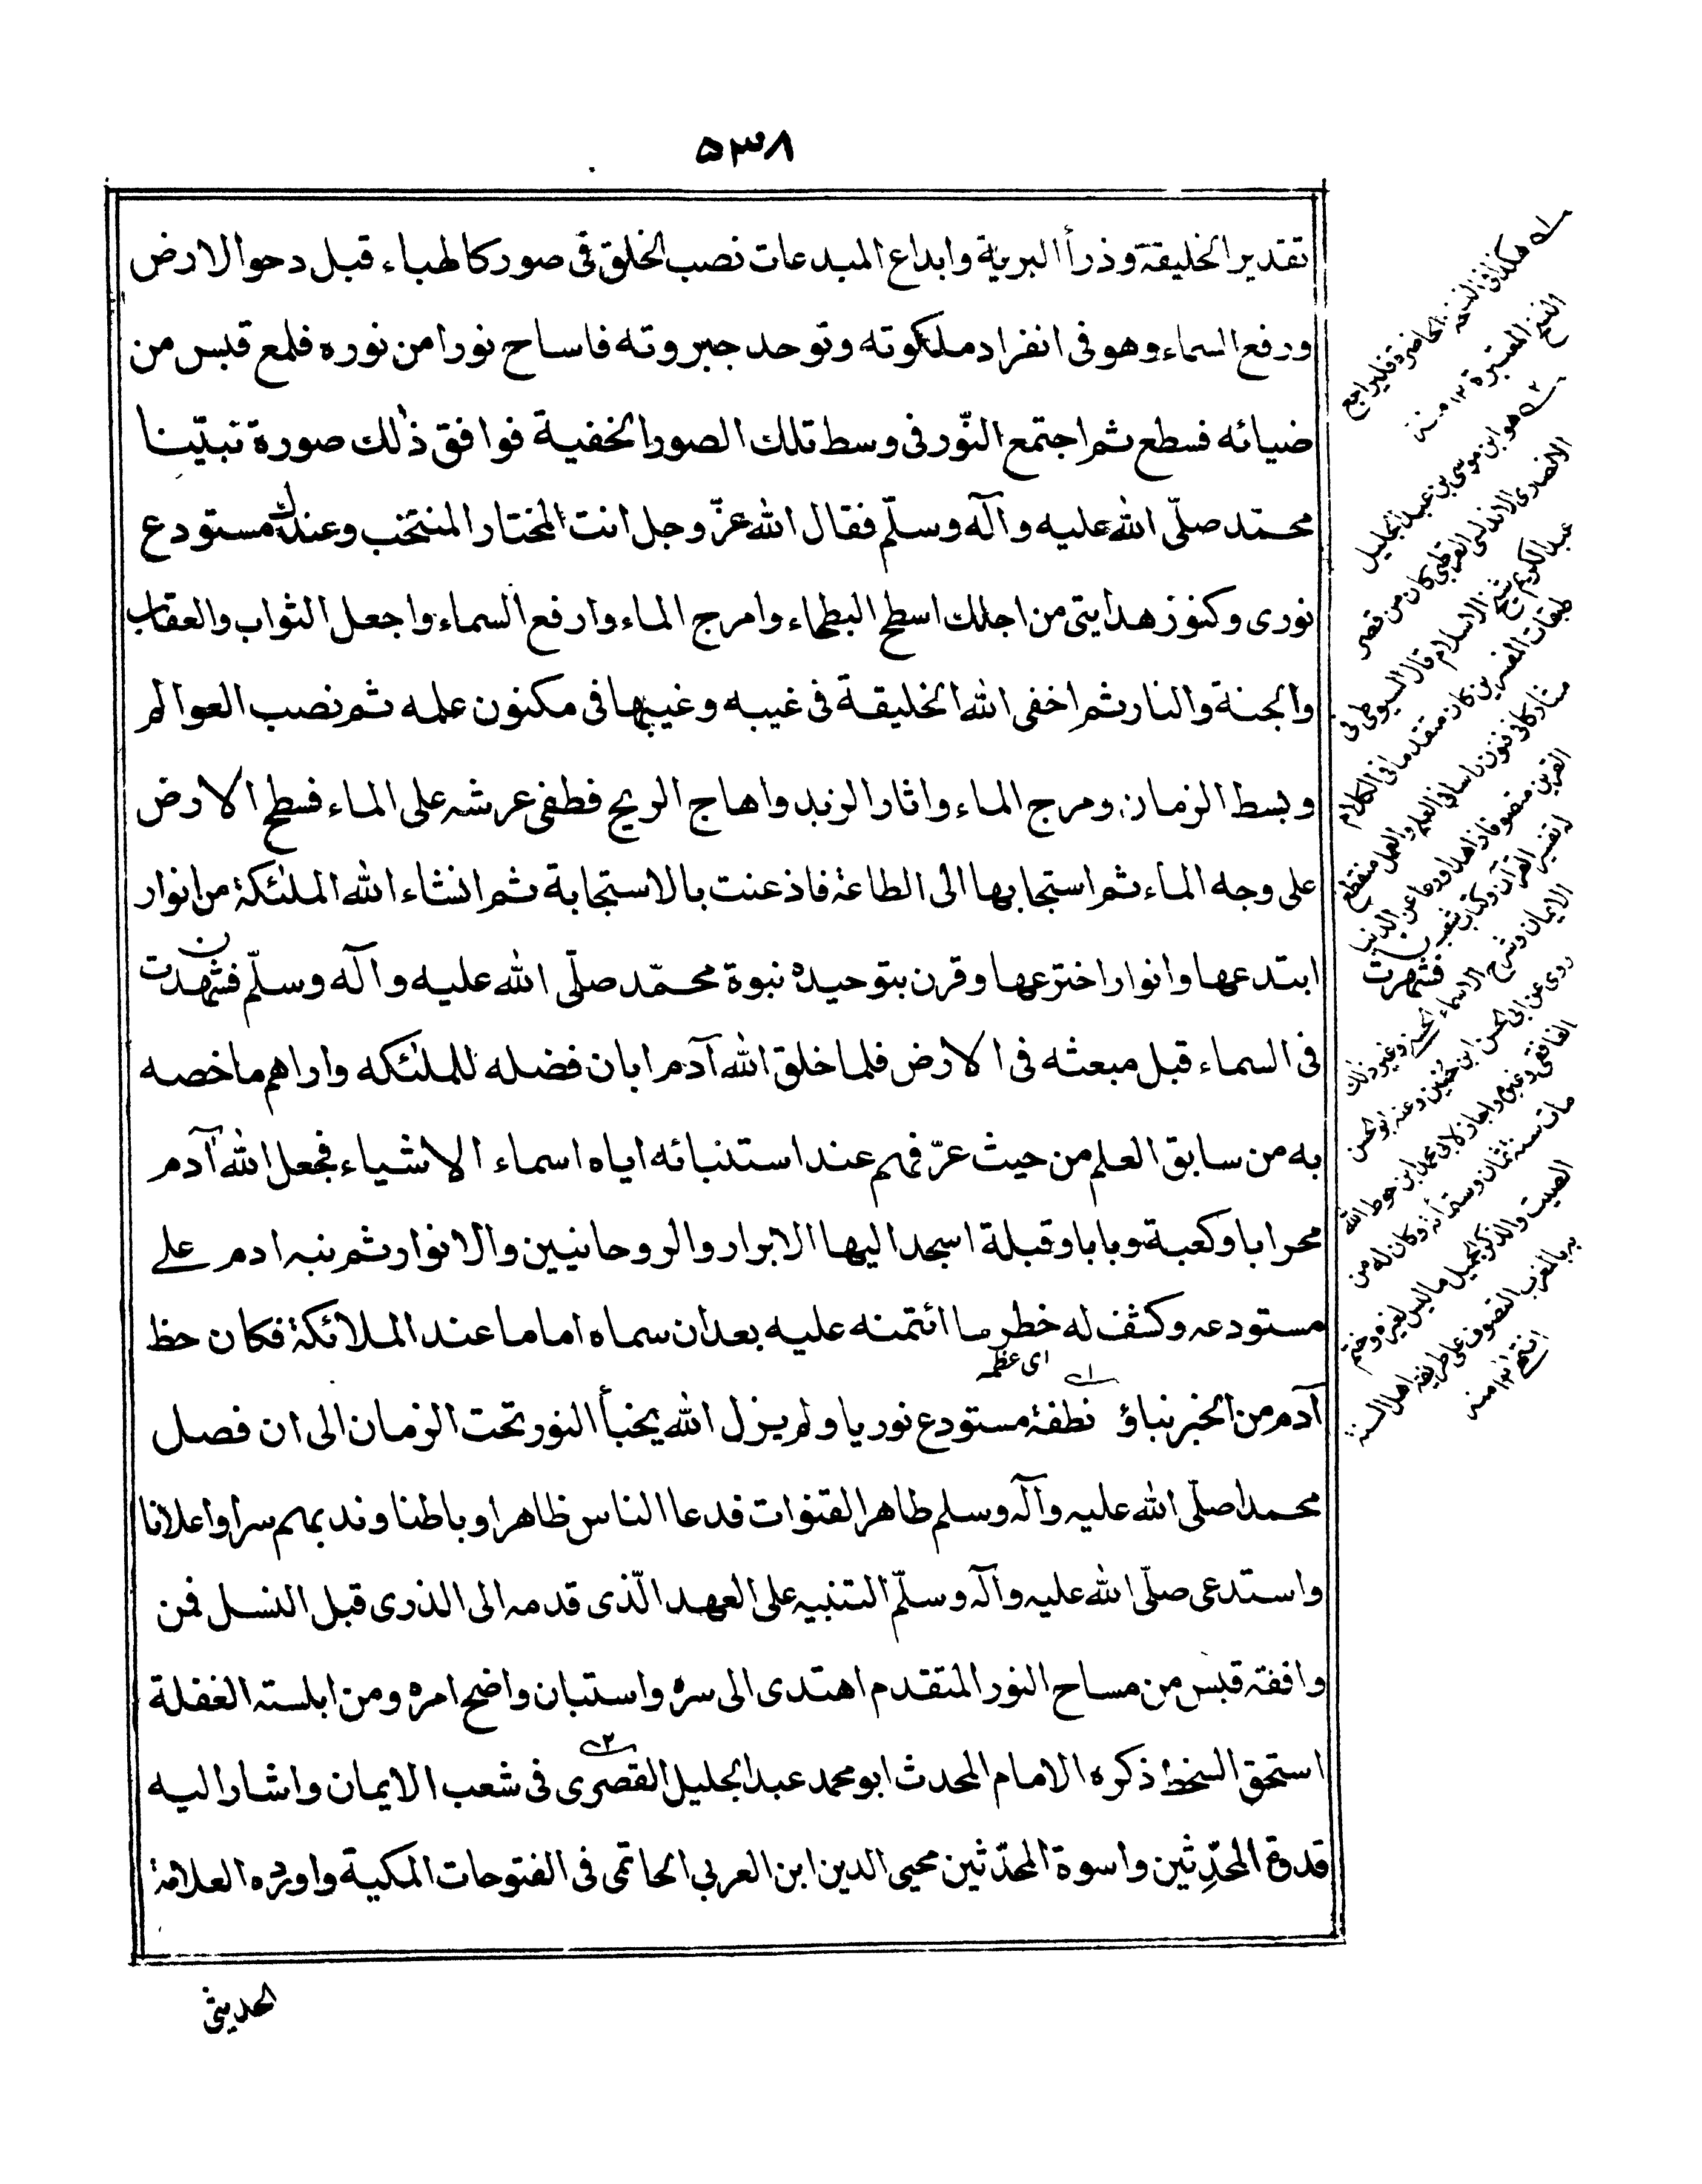 ۵۳۸
تقدير الخليقة وذرأ البرية وابداع المبدعات نصب الخلق فى صور كالهباء قبل دحو الارض
ورفع السماء وهو فى انفراد ملكوته وتوحد جبروته فاساح نورا من نوره فلمع قبس من
ضيائه فسطع ثم اجتمع النّور فى وسط تلك الصور الخفية فوافق ذٰلك صورة نبيّنا
محمّد صلّى الله عليه وآله وسلّم فقال الله عزّ وجل انت المختار المنتخب وعندك مستودع
نورى وكنوز هدايتى من اجلك اسطح البطحاء وامرج الماء وارفع السماء واجعل الثواب والعقاب
والجنة والنار ثم اخفى الله الخليقة فى غيبه وغيبها فى مكنون علمه ثم نصب العوالم
وبسط الزمان ومرج الماء واثار الزبد واهاج الريح فطفى عرشه على الماء فسطح الارض
على وجه الماء ثم استجابها الى الطاعة فاذعنت بالاستجابة ثم انشاء الله الملٰئكة من انوار
ابتدعها وانوار اخترعها وقرن بتوحيده نبوة محمّد صلّى الله عليه وآله وسلّم فشهدت
فى السماء قبل مبعثه فى الارض فلما خلق الله آدم ابان فضله للملٰئكه واراهم ما خصه
به من سابق العلم من حيث عرّفهم عند استنبائه اياه اسماء الاشياء فجعل الله آدم
محرابا وكعبة وبابا وقبلة اسجد اليها الابرار والروحانيين والانوار ثم نبه ادم على
مستودعه وكشف له خطر ما ائتمنه عليه بعد ان سماه اماما عند الملائكة فكان حظ
اى عظمه
آدم من الخبر نباؤ نطفة مستودع نوريا ولم يزل الله يخبأ النور تحت الزمان الى ان فصل
محمدا صلّى الله عليه وآله وسلم طاهر القنوات فدعا الناس ظاهرا وباطنا وندبهم سرا واعلانا
واستدعى صلّى الله عليه وآله وسلّم التنبيه على العهد الّذى قدمه الى الذرى قبل النسل فمن
وافقه قبس من مساح النور المتقدم اهتدى الى سره واستبان واضح امره ومن ابلسته الغفلة
استحق السخط ذكره الامام المحدث ابو محمد عبد الجليل القصرى فى شعب الايمان واشار اليه
قدوة المحدّثين واسوة المحدّثين محيى الدين ابن العربي الحاتمى فى الفتوحات المكية واورده العلامة
الحديثى
له هكذا فى النسخة الحاضرة فليراجع
النسخ المعتبرة ١٢ منه
٢ه هو ابن موسى بن عبد الجليل
الانصرى الاندلسى القرطبى كان من قصر
عبد الكريم شيخ الاسلام قال السيوطى فى
طبقات المفسرين كان متقدما فى الكلام
مشاركا فى فنون راسا فى العلم والعمل منقطع
القرين متصوفا زاهدا ورعا عن الدنيا
له تفسير القرآن وكتاب شعب
فشهرت
الايمان وشرح الاسماء الحسنى وغير ذلك
روى عن ابى الحسن ابن حنين وعنه ابو الحسن
الغافقى وغيره واجاز لابى محمد ابن حوط الله
مات سنة ثمان وستمائة وكان له من
الصيت والذكر الجميل ما ليس لغيره وختم
به بالمغرب التصوف على طريقة اهل السنة
انتهى ١٢ منه